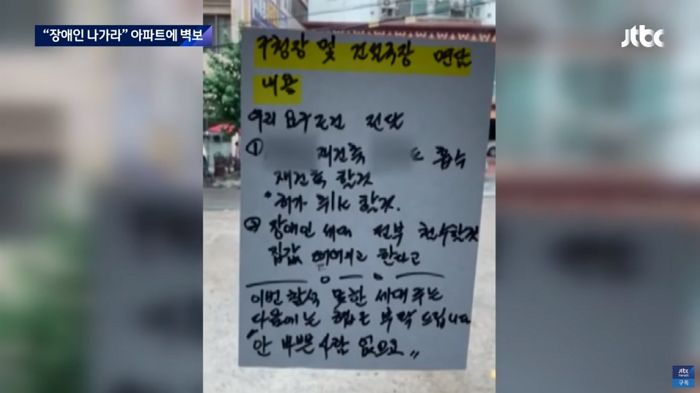 “장애인 나가라” 아파트에 벽보
jtbc
구청장 및 건설국장 면담
내용
우리 요구조건 전달
① 재건축 흡수
재건축 할것
*허가 취소 할것.
② 장애인 세대 전부 할것
집값 떨어지고 한다고
이번 참석 못한 세대주는
다음에는 협조 부탁 드립니다
안 바쁜 사람 없으고 〃
jtbc
news
구독